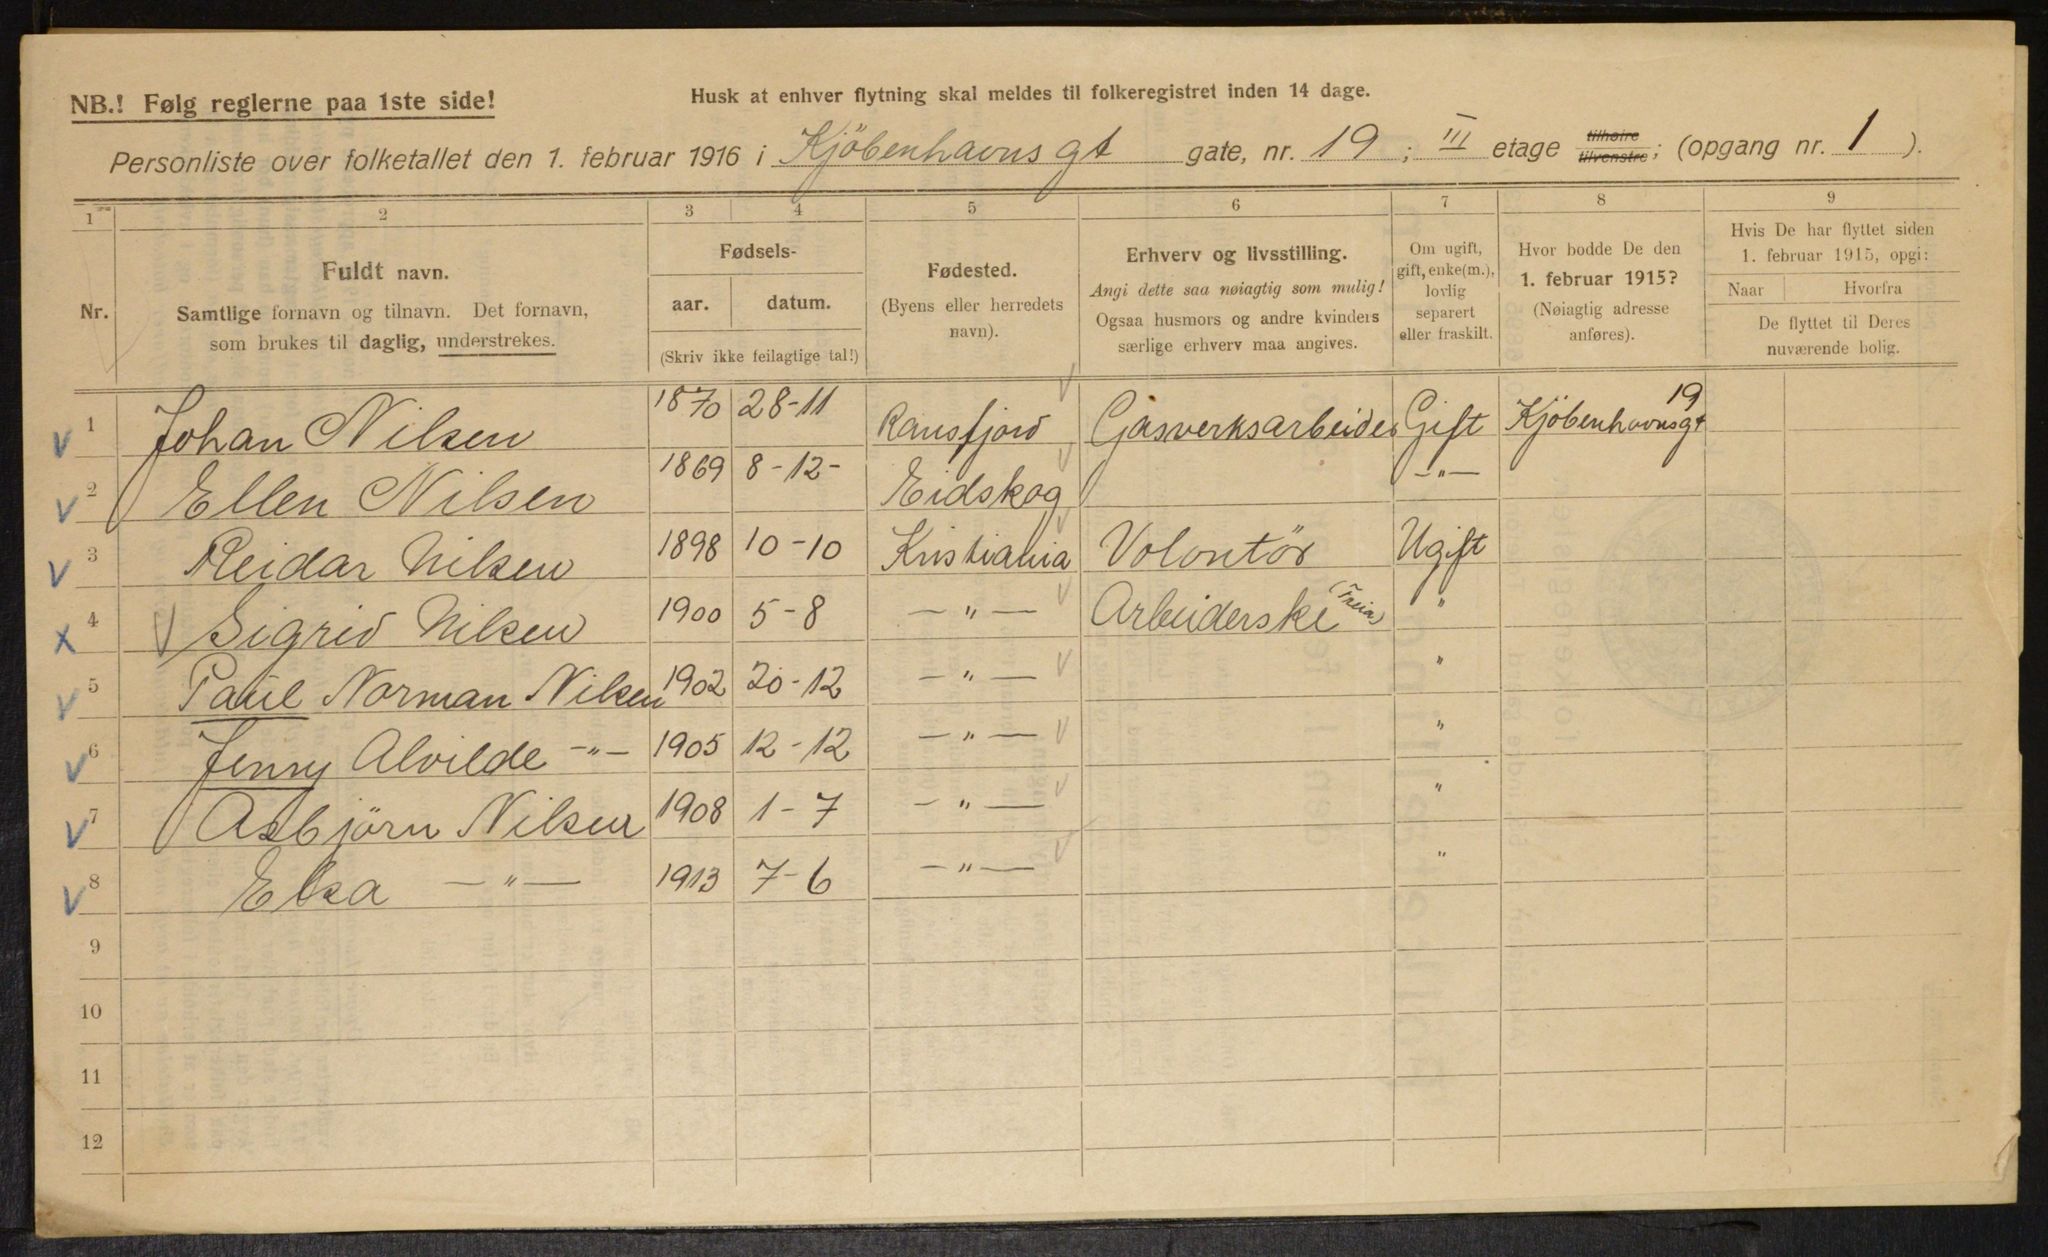 NB.! Følg reglerne paa 1ste side!
Husk at enhver flytning skal meldes til folkeregistret inden 14 dage.
Personliste over folketallet den 1. februar 1916 i Kjöbenhavns gt gate, nr. 19 ; III etage tilhøire tilvenstre; (opgang nr. 1 ).
1 2 3 4 5 6 7 8 9
Nr.
Fuldt navn.
Samtlige fornavn og tilnavn. Det fornavn,
som brukes til daglig, understrekes.
Fødsels-
aar. datum.
(Skriv ikke feilagtige tal!)
Fødested.
(Byens eller herredets
navn).
Erhverv og livsstilling.
Angi dette saa nøiagtig som mulig!
Ogsaa husmors og andre kvinders
særlige erhverv maa angives.
Om ugift,
gift, enke(m.),
lovlig
separert
eller fraskilt.
Hvor bodde De den
1. februar 1915?
(Nøiagtig adresse
anføres).
Hvis De har flyttet siden
1. februar 1915, opgi:
Naar Hvorfra
De flyttet til Deres
nuværende bolig.
1 Johan Nilsen 1870 28-11 Gasverksarbeider Gift Kjöbenhavnsgt 19
2 Ellen Nilsen 1869 8-12- Eidskog -"-
3 Reidar Nilsen 1898 10-10 Kristiania Volontör Ugift
4 Sigrid Nilsen 1900 5-8 -"- Arbeiderske (Freia) "
5 Paul Norman Nilsen 1902 20-12 -"- "
6 Jenny Alvilde -"- 1905 12-12 -"- "
7 Asbjörn Nilsen 1908 1-7 -"- "
8 Elsa -"- 1913 7-6 -"- "
9
10
11
12